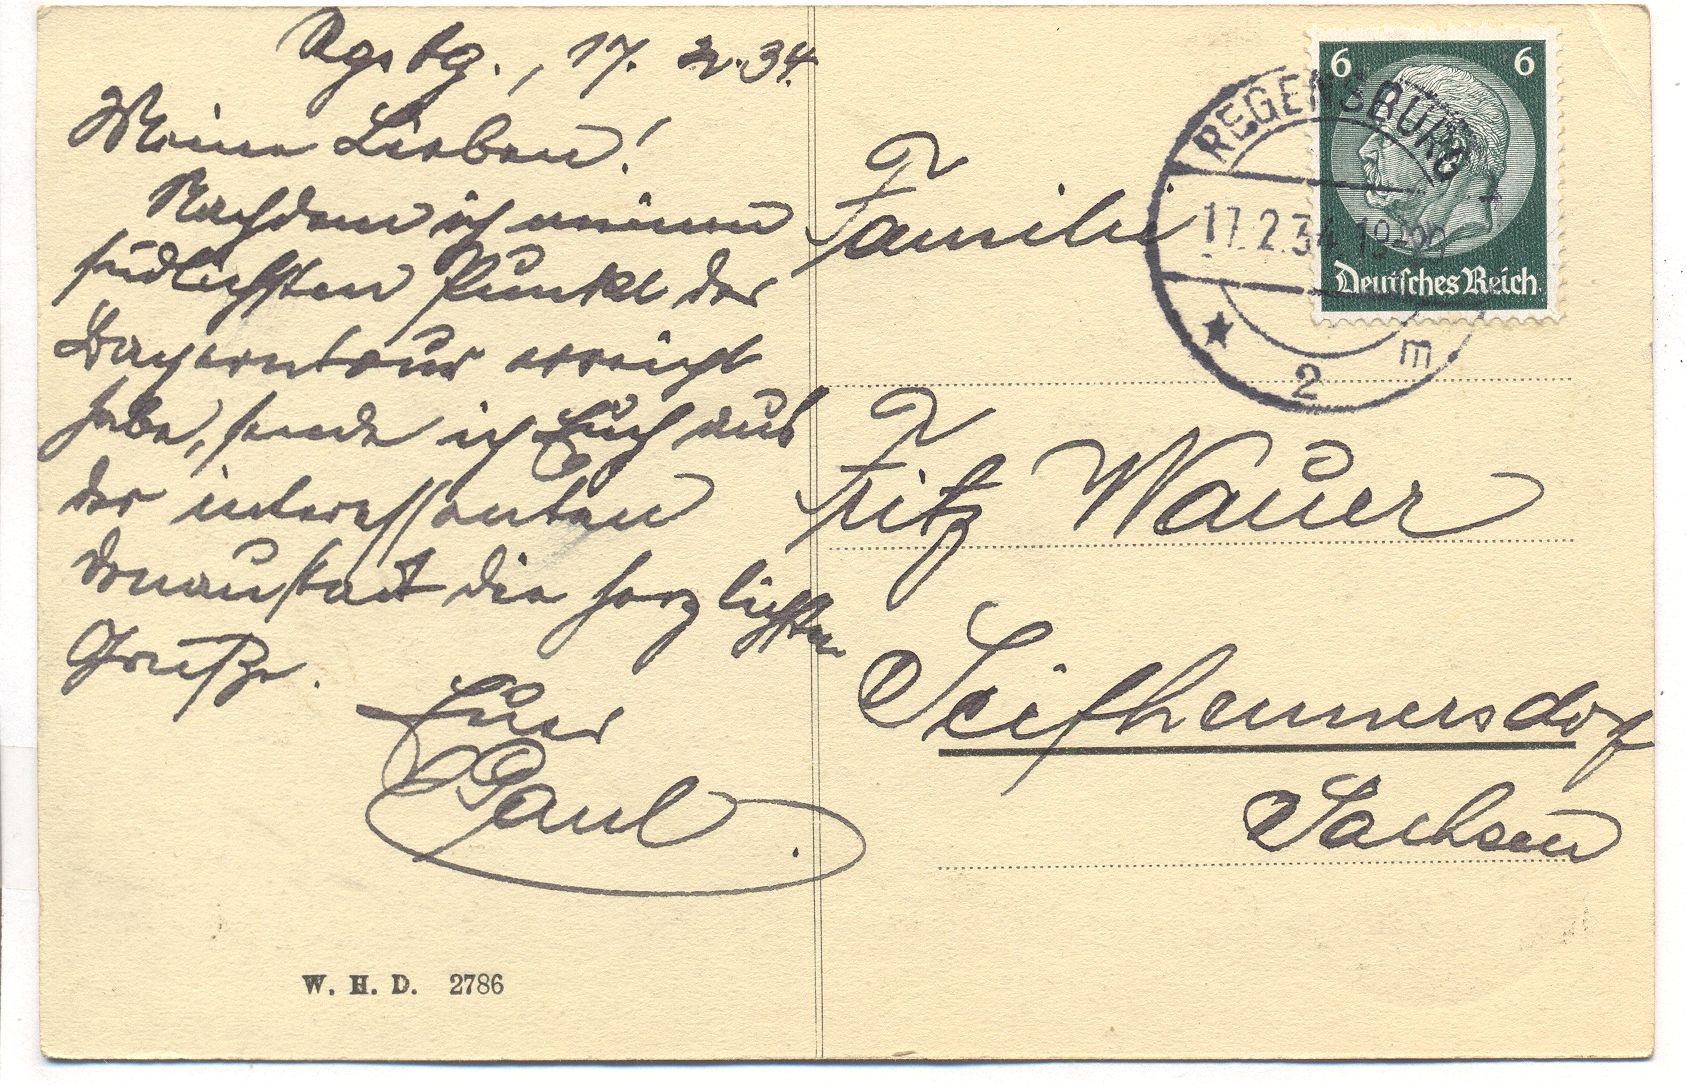 Rgsbg., 17. 2. 34.
Meine Lieben!
Nachdem ich meinen
südlichsten Punkt der
Bayerntour erreicht
habe, sende ich Euch aus
der interessanten
Donaustadt die herzlichsten
Grüße.
Euer
Paul.
W. H. D. 2786
6 6
Deutsches Reich
REGENSBURG
17.2.34 19
2 m
Familie
Fritz Wauer
Seifhennersdorf
Sachsen